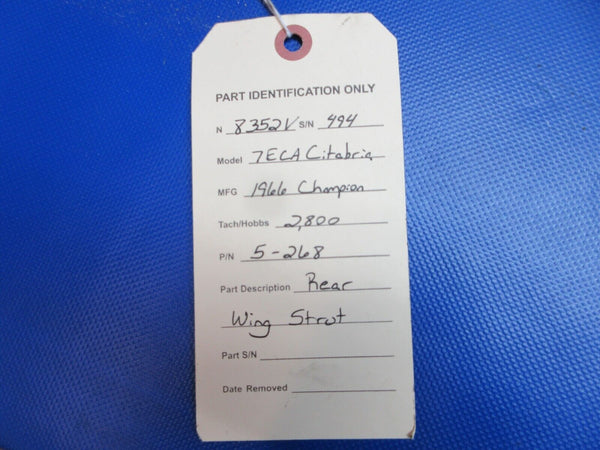 PART IDENTIFICATION ONLY
N 8352V S/N 494
Model 7ECA Citabria
MFG 1966 Champion
Tach/Hobbs 2,800
P/N 5-268
Part Description Rear
Wing Strut
Part S/N
Date Removed